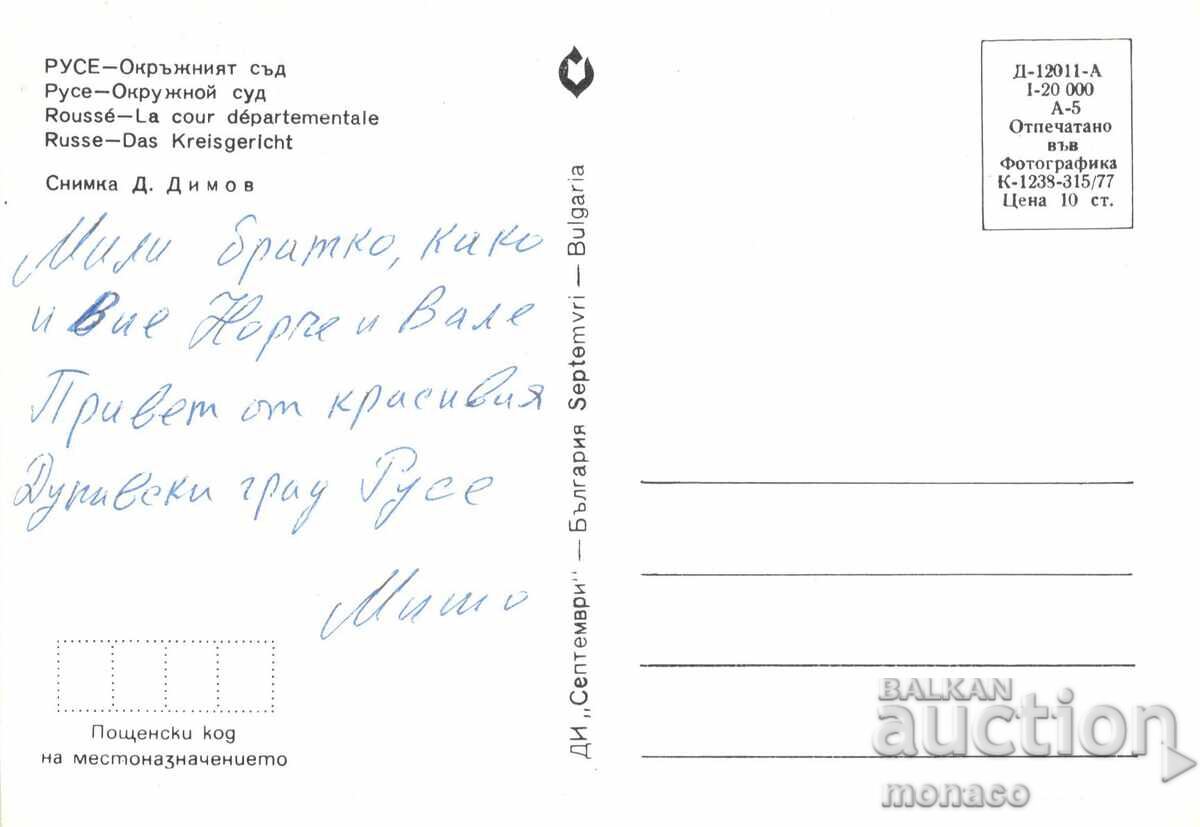 РУСЕ—Окръжният съд
Русе—Окружной суд
Roussé—La cour départementale
Russe—Das Kreisgericht
Снимка Д. Димов
Мили братко, како
и Вие и Вале
Привет от красивия
Дунавски град Русе
Мито
Пощенски код
на местоназначението
ДИ „Септември" — България Septemvri — Bulgaria
Д-12011-А
I-20 000
А-5
Отпечатано
във
Фотографика
К-1238-315/77
Цена 10 ст.
BALKAN
auction
monaco